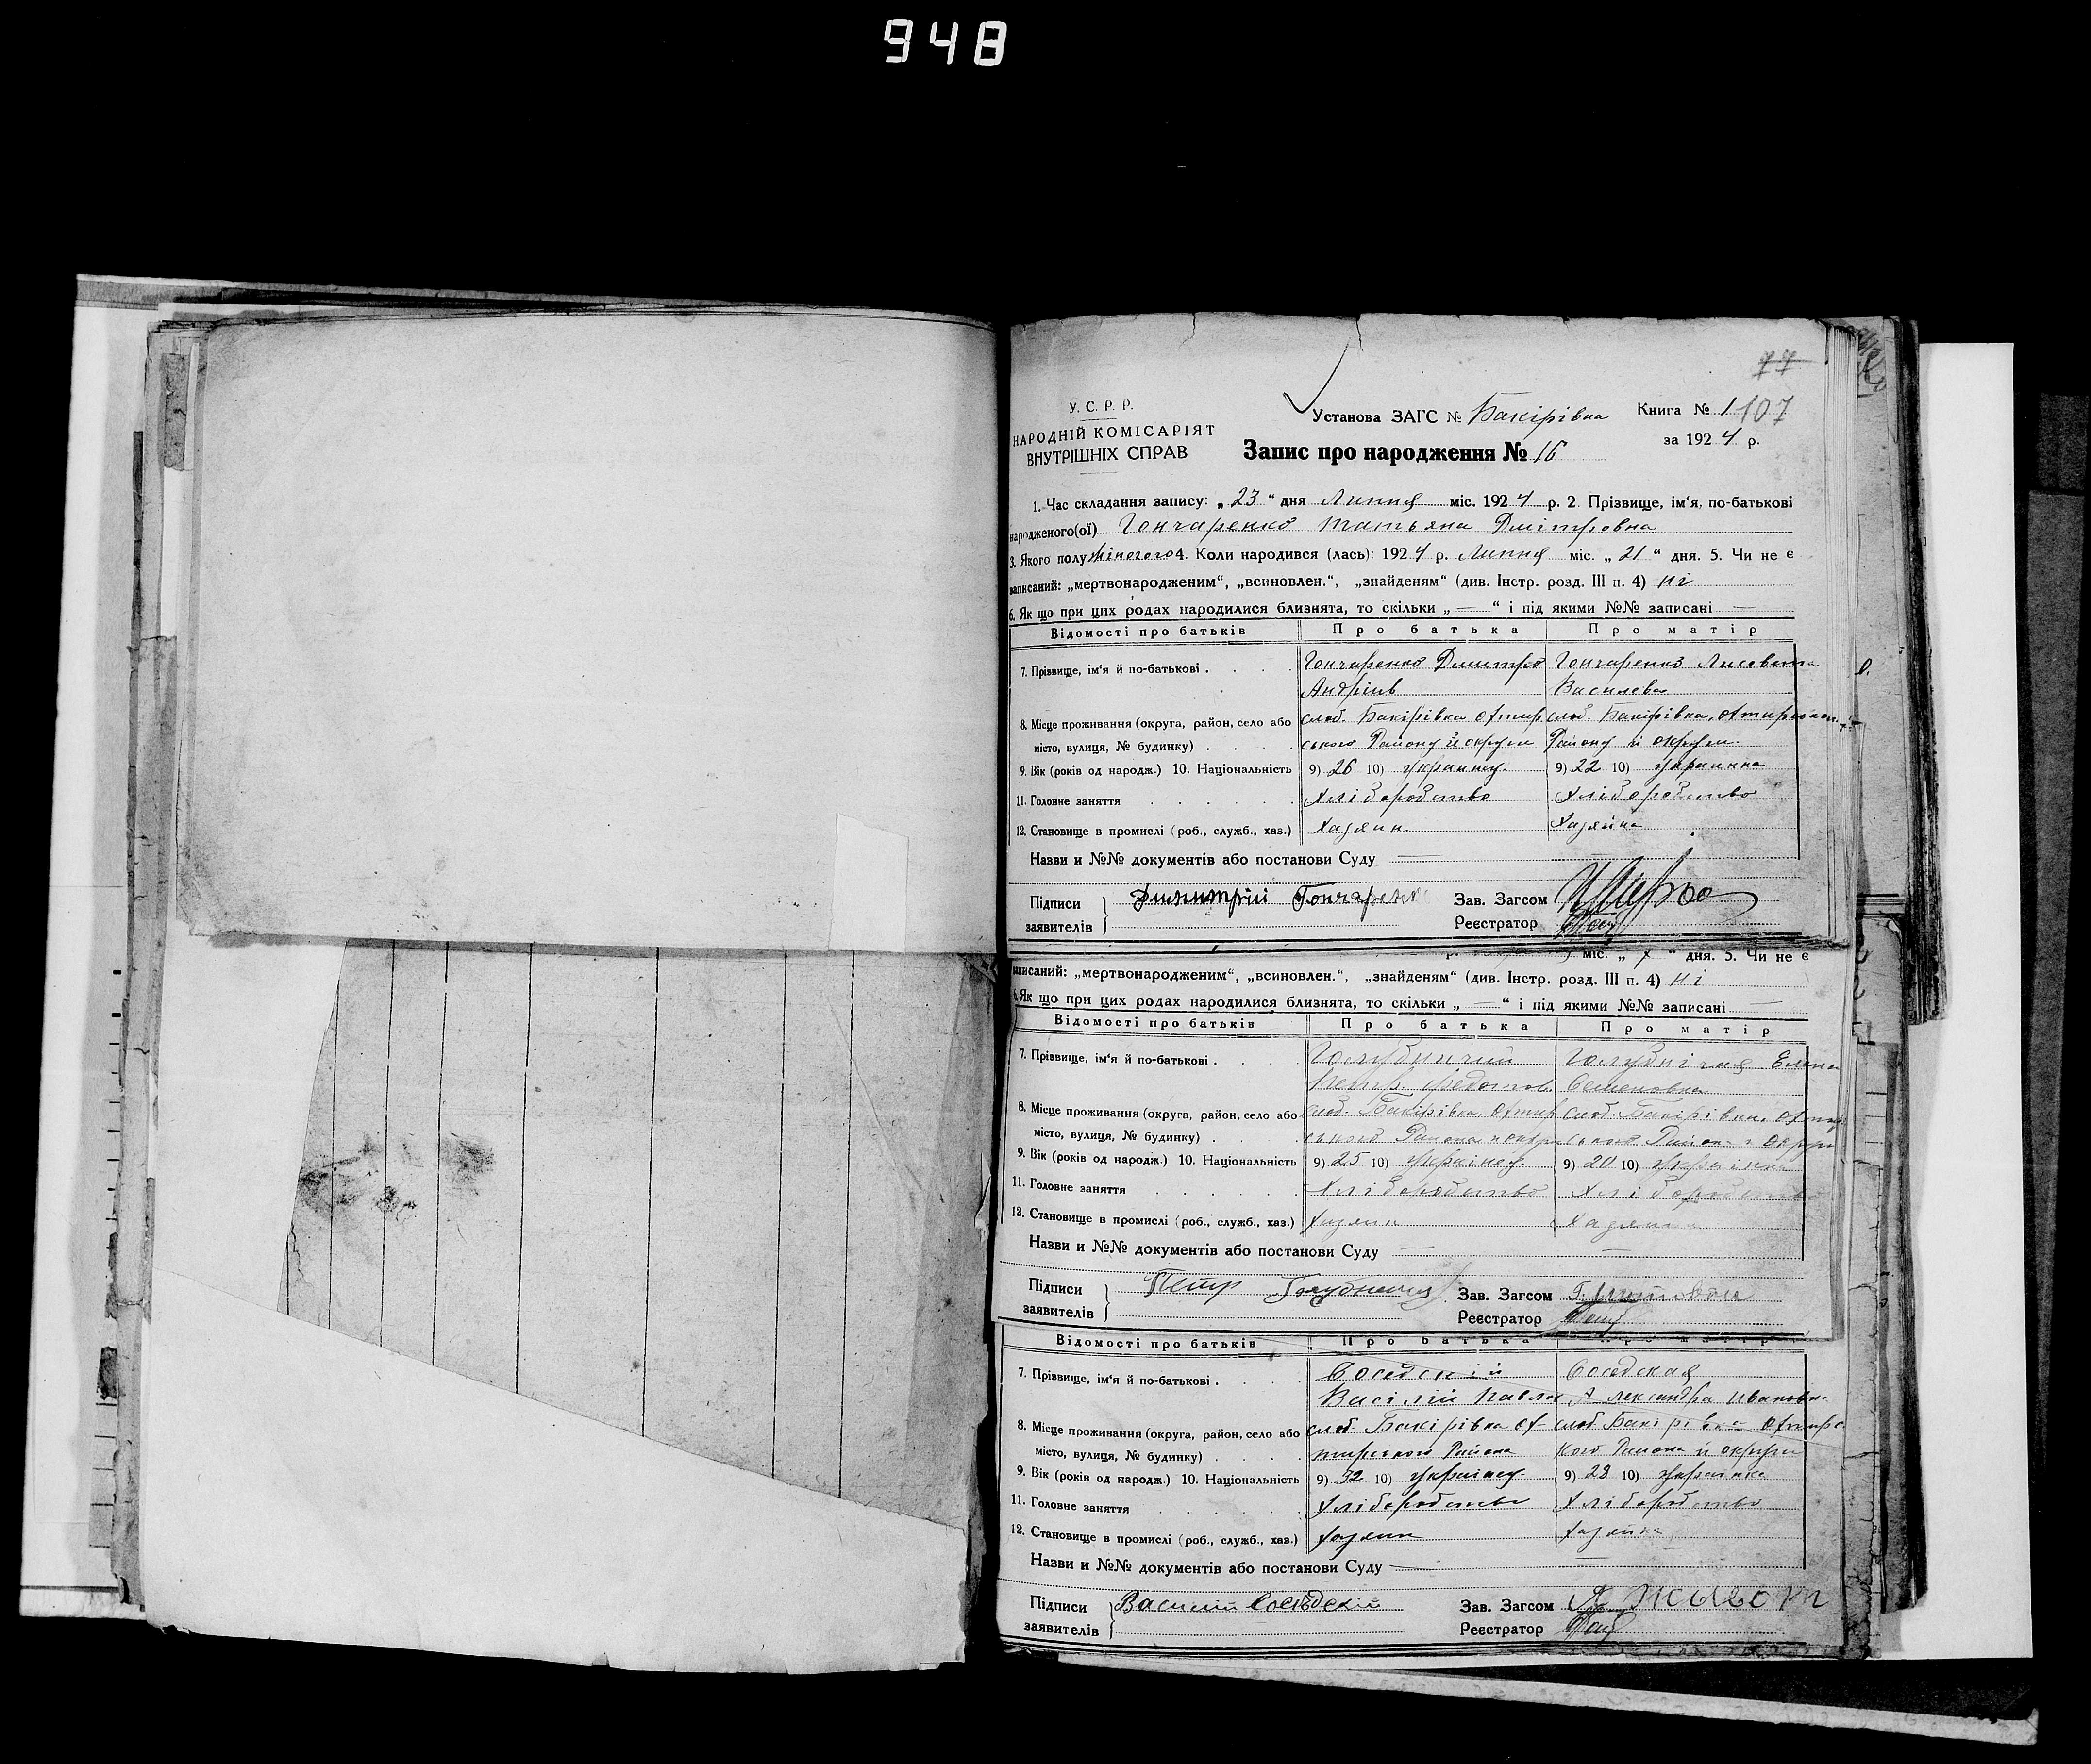 948
77
У. С. Р. Р.
НАРОДНІЙ КОМІСАРІЯТ
ВНУТРІШНІХ СПРАВ
Установа ЗАГС № Бакірівка Книга № 1 107
за 1924 р.
Запис про народження № 16
1. Час складання запису: „23“ дня Липня міс. 1924 р. 2. Прізвище, ім‘я, по-батькові
народженого(ої) Гончаренко Татьяна Дмітровна
3. Якого полу жіночого 4. Коли народився (лась): 1924 р. Липня міс. „21“ дня. 5. Чи не є
записаний: „мертвонародженим“, „всиновлен.“, „знайденям“ (див. Інстр. розд. III п. 4) ні
6. Як що при цих родах народилися близнята, то скільки „—“ і під якими №№ записані —
Відомості про батьків Про батька Про матір
7. Прізвище, ім‘я й по-батькові . Гончаренко Дмитро Гончаренко Лисавета
Андріїв Васильева
8. Місце проживання (округа, район, село або слоб. Бакірівка Охтир слоб. Бакірівка, Охтирського
місто, вулиця, № будинку) . ського Району й округи Району й округи
9. Вік (років од народж.) 10. Національність 9) 26 10) Українец 9) 22 10) Украинка
11. Головне заняття Хліборобство Хліборобство
12. Становище в промислі (роб., служб., хаз.) Хазяин Хазяйка
Назви и №№ документів або постанови Суду —
Підписи заявителів Димитрій Гончаренко Зав. Загсом
Реєстратор
міс. „ “ дня. 5. Чи не є
записаний: „мертвонародженим“, „всиновлен.“, „знайденям“ (див. Інстр. розд. III п. 4) ні
6. Як що при цих родах народилися близнята, то скільки „—“ і під якими №№ записані —
Відомості про батьків Про батька Про матір
7. Прізвище, ім‘я й по-батькові . Голубничий Голубнічая Елена
Петр Федотов Семеновна
8. Місце проживання (округа, район, село або слоб. Бакірівка, Охтир слоб. Бакірівка, Охтир
місто, вулиця, № будинку) . ського Района и округи ського Района и Округи
9. Вік (років од народж.) 10. Національність 9) 25 10) Українец 9) 20 10) Українка
11. Головне заняття Хліборобство Хліборобство
12. Становище в промислі (роб., служб., хаз.) Хазяин Хазяйка
Назви и №№ документів або постанови Суду — —
Підписи заявителів Петр Голубничий Зав. Загсом
Реєстратор
Відомості про батьків Про батька Про матір
7. Прізвище, ім‘я й по-батькові . Соседский Соседская
Васілий Павлов Александра Ивановн.
8. Місце проживання (округа, район, село або слоб Бакірівка Ох- слоб. Бакірівка Охтирс
місто, вулиця, № будинку) . тирського Района кого Района и округи
9. Вік (років од народж.) 10. Національність 9) 32 10) Українец 9) 28 10) Українка
11. Головне заняття Хліборобство Хліборобство
12. Становище в промислі (роб., служб., хаз.) Хазяин Хазяйка
Назви и №№ документів або постанови Суду — —
Підписи заявителів Василий Сосѣдский Зав. Загсом Я Живот
Реєстратор